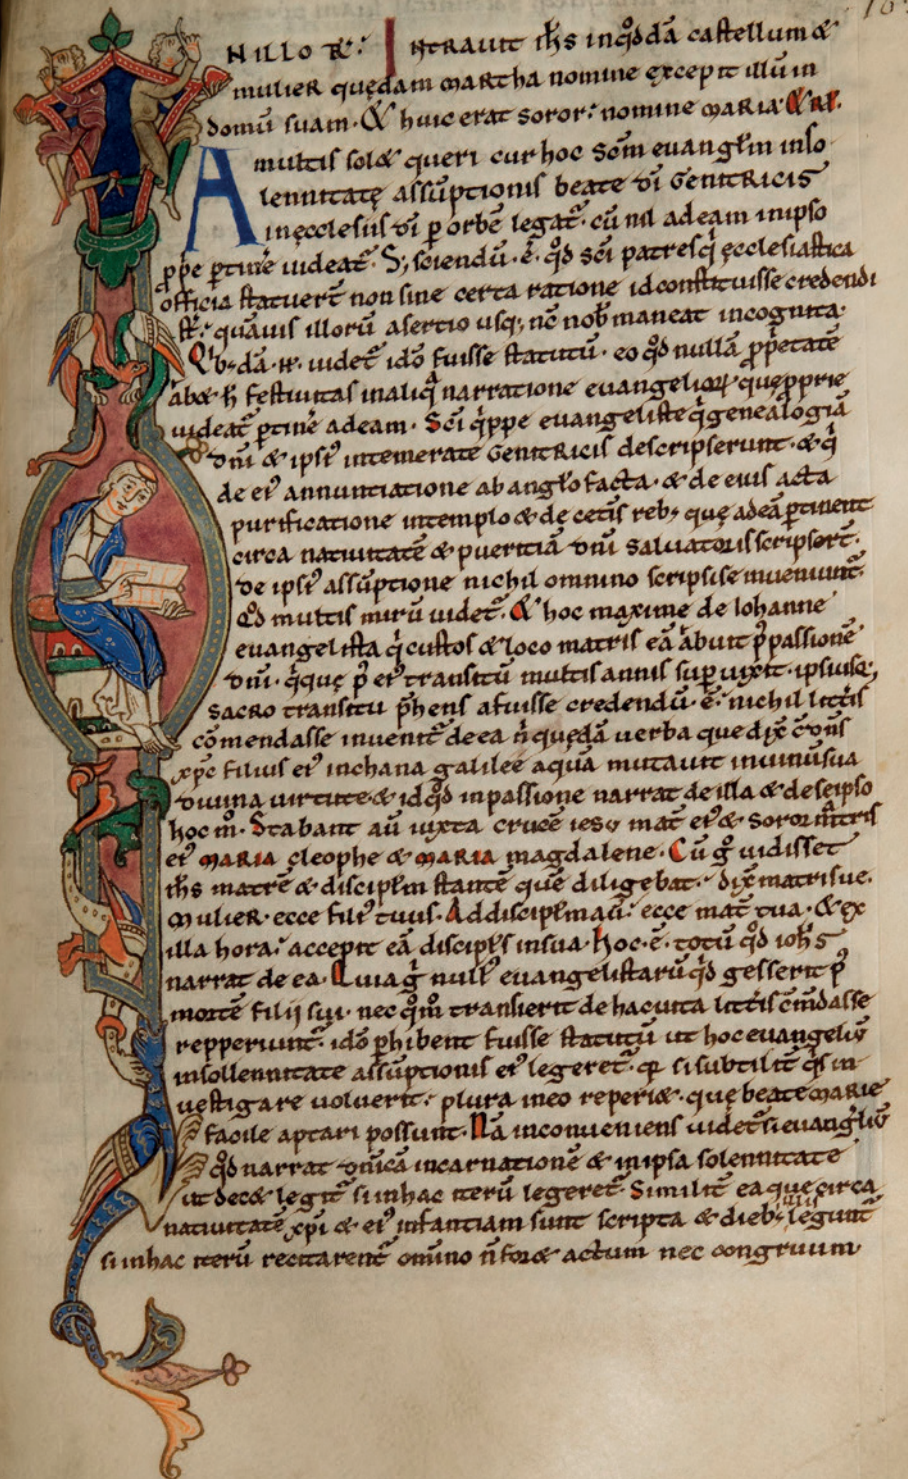 IN ILLO Tꝑ. INTRAVIT ıħs inqͦddā castellum &
mulier quędam martha nomine excepit illū in
domū suam. & huic erat soror nomine maria. & rł.
A multis solet queri cur hoc scm̄ evangłm in so
lennitatę assūptionis beate di genitricis
inęcclesiis di ꝑ orbē legat̄. cū nil ad eam in ipso
ꝓpe ꝑtinere uideat̄. Sꝫ sciendū. ē. qđ sci patresqꝫ ęcclesiastica
officia statuert̄ non sine certa ratione id constituisse credendi
st̄. quāuis illorū asertio usqꝫ nc̄ nob maneat incognita.
Qb;dā. n. uidet̄ idō fuisse statutū. eo qđ nullā ꝓpetatē
abet h̄ festiuitas in aliq narratione evangelioꝝ quęꝓprie
uideat̄ ꝑtinē ad eam. Sci qppe evangeliste q genealogiā
dn̄i & ipsi intemerate genitricis descripserunt. & q
de ei annuntiatione ab angło facta. & de eius acta
purificatione in templo & de cetis reb; quę ad eā ꝑtinent
circa natiuitatē & pueritiā dn̄i saluatoris scripsert̄.
de ipsi assūptione nichil omnino scripsise inueniunt̄.
Qđ multis mirū uidet̄. & hoc maxime de Iohanne
evangelista q custos & loco matris eā abuit p passionē
dn̄i. qque p ei transitū multis annis suꝑ uixit. ipsiusqꝫ
sacro transitu p̄hens afuisse credendū. ē. nichil litt̄is
cōmendasse inuenit̄ de ea n̄ quędā uerba que dix̄ c̄ dn̄s
xp̄c filius ei in chana galilee aquā mutauit in uinū sua
diuina uirtute. & id qđ in passione narrat de illa & de seipso
hoc m̊. Stabant aū iuxta crucē iesu mat̄ ei & soror matris
ei maria cleophe & maria magdalene. Cū g̊ uidisset
ıħs matrē & discipłm stantē quē diligebat. dix̄ matri sue.
Mulier. ecce fili tuus. Ad discipłm aū. ecce mat̄ tua. & ex
illa hora accepit eā discipłs in sua. hoc. ē. totū qđ ioħs
narrat de ea. Quia g̊ null evangelistarū qd gesserit p
mortē filij sui. nec qm̄ transierit de hac uita litt̄is cm̄dasse
repperiunt̄. idō ꝑhibent fuisse statutū ut hoc evangeliū
in sollennitate assūptionis ei legeret̄. qꝛ si subtilit̄ qs in
uestigare uoluerit. plura in eo reperiet. quę beate marie
facile aptari possunt. Nā inconueniens uidet̄ si evangliū
qđ narrat dn̄icā incarnationē & in ipsa solennitate
ut decet legit̄ si in hac iterū legeret̄. Similit̄ ea que circa
natiuitatē xp̄i & ei infantiam sunt scripta & dieb; illis legunt̄
si in hac iterū recitarent̄ omīno n̄ foret actum nec congruum